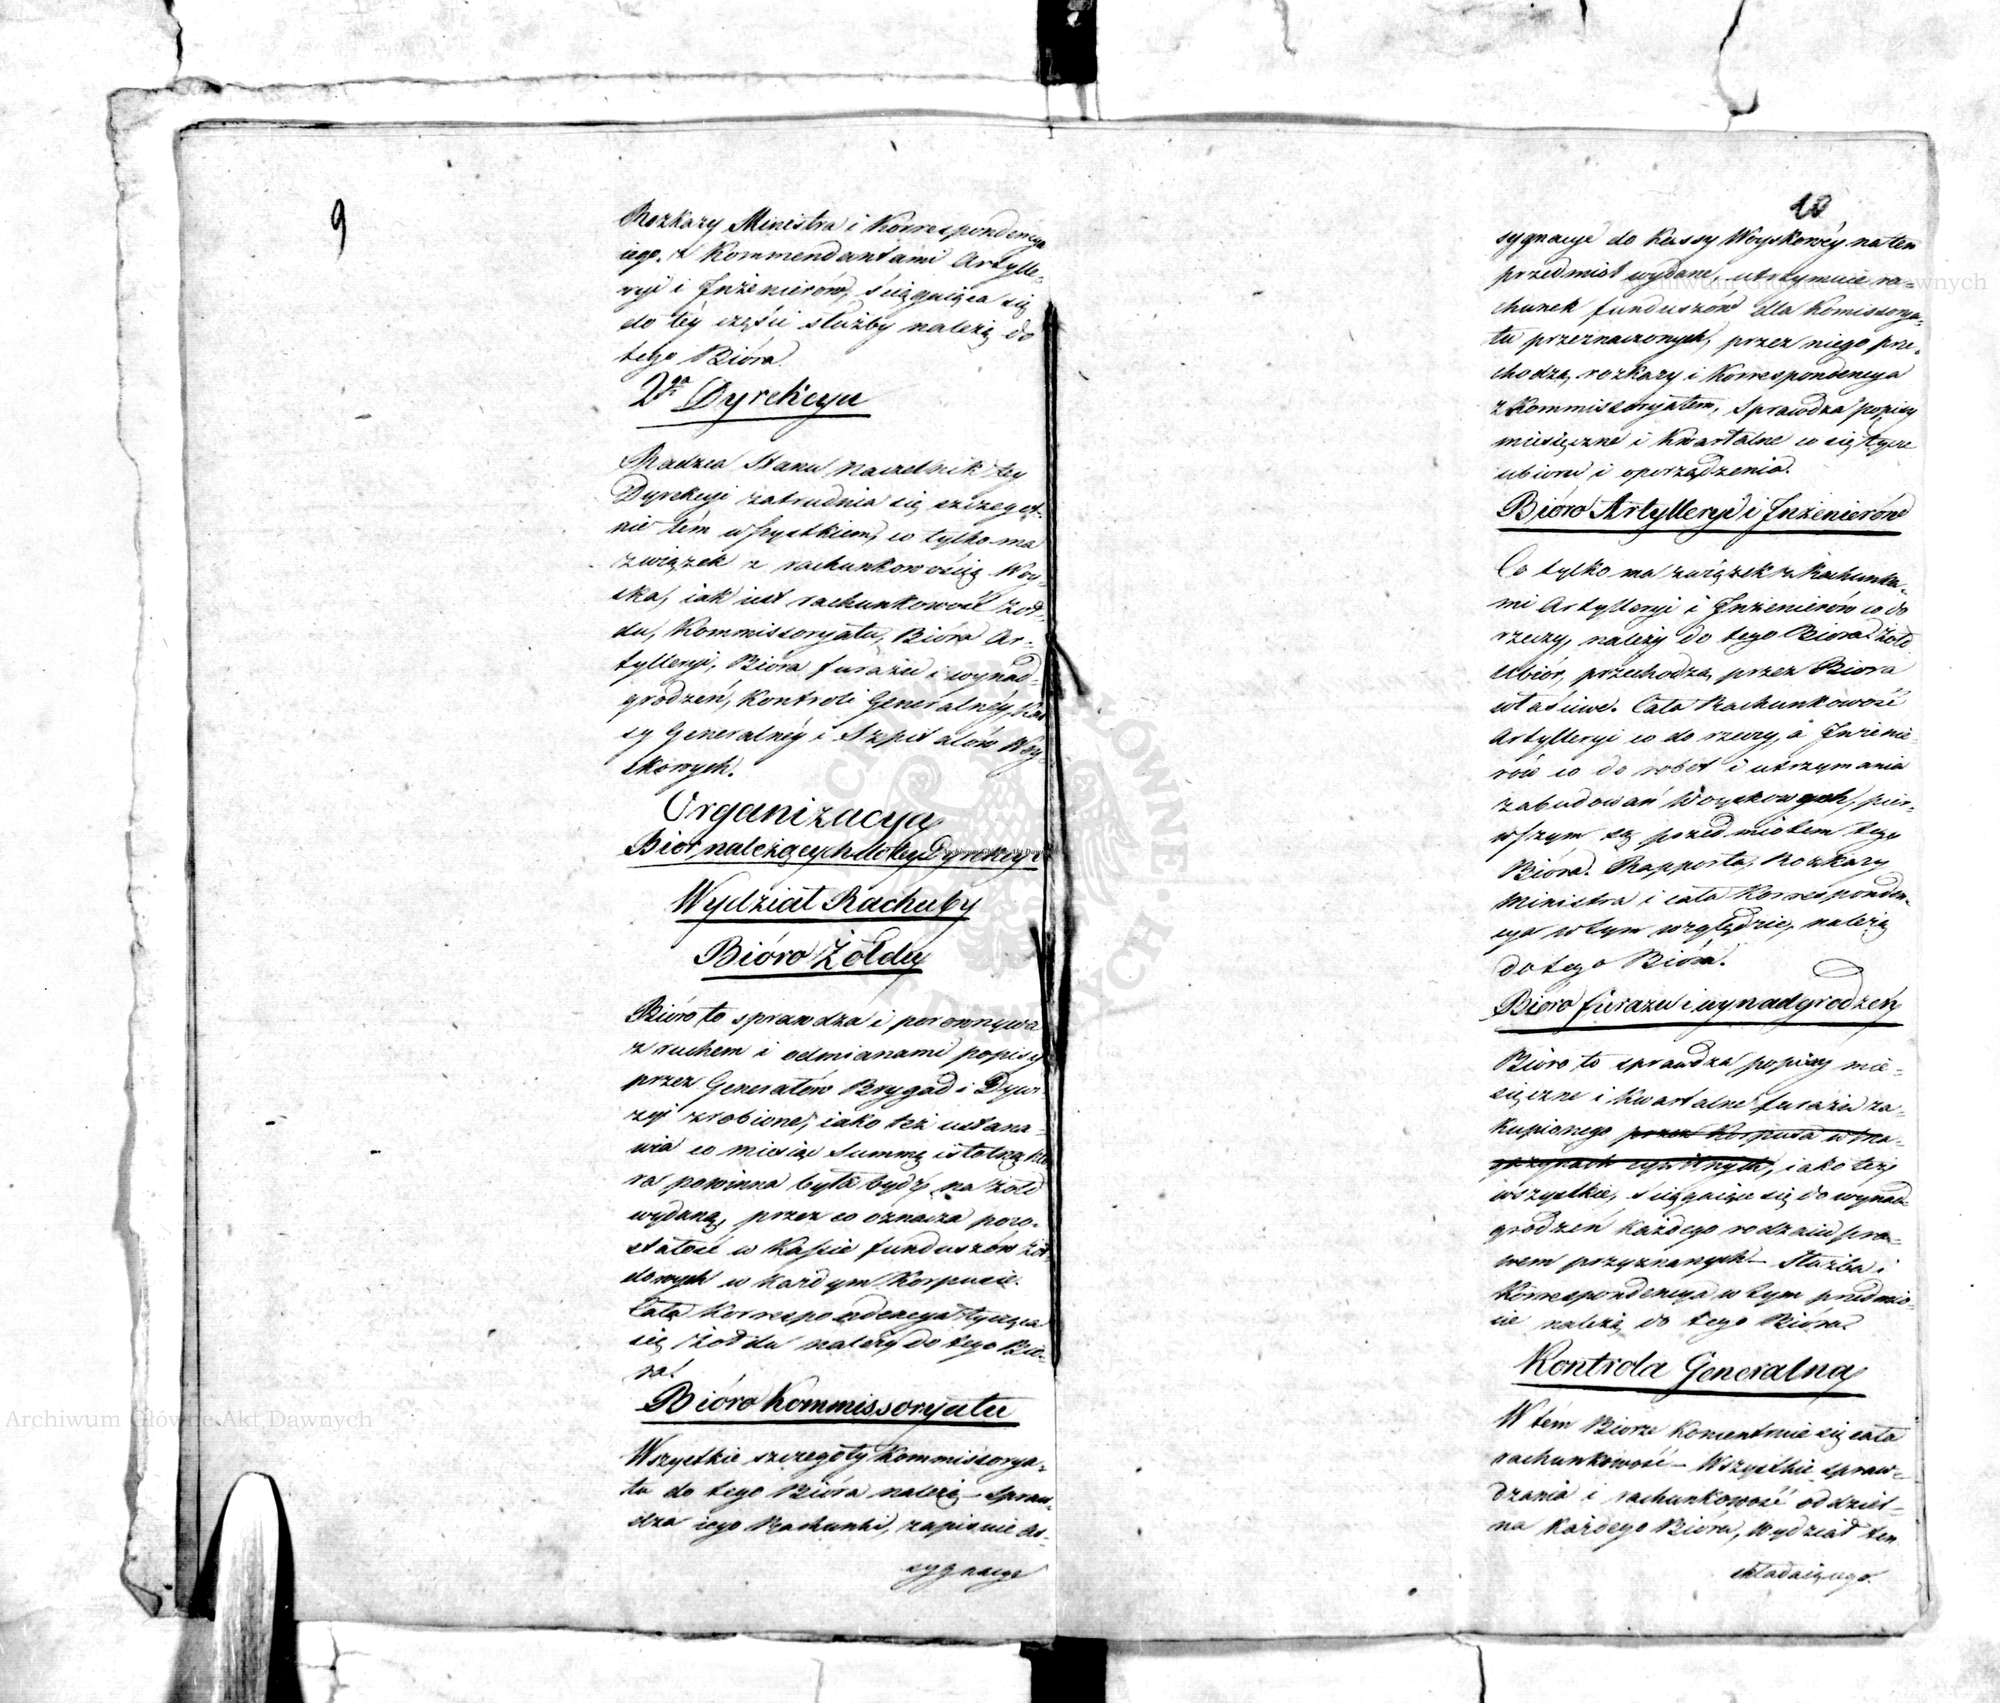 9
Rozkazy Ministra i Korrespondencya
iego, z Kommendantami Artylle-
ryi i Inżenierów, ściągaiąca się
do téy części służby należą do
tego Bióra.
2ga Dyrekcya
Radzca Stanu Naczelnik téy
Dyrekcyi zatrudnia się szczegól-
nie tém wszystkiem, co tylko ma
związek z rachunkowością Woy-
ska, iak iest rachunkowość żoł-
du, Kommissoryatu, Bióra Ar-
tylleryi, Bióra furażu i wynad-
grodzeń, Kontroli Generalnéy, Kas
sy Generalnéy i Szpitalów Woy-
skowych.
Organizacya
Biór należących do téy Dyrekcyi
Wydział Rachuby
Bióro Żołdu
Bióro to sprawdza i porownywa
z ruchem i odmianami popisy
przez Generałów Brygad i Dywi-
zyi zrobione, iako też ustana-
wia co miesiąc Summę istotną któ
ra powinna była bydź na żołd
wydaną, przez co oznacza pozo-
stałość w Kassie funduszów żoł
dowych w każdym Korpusie.
Cała Korrespondencya tycząca
się żołdu należy do tego Bió-
ra.
Bióro Kommissoryatu
Wszystkie szczegóły Kommissorya-
tu do tego Bióra należą – spraw-
dza iego Rachunki, zapisuie As-
sygnacye
10
sygnacye do Kassy Woyskowéy na ten
przedmiot wydane, utrzymuie ra-
chunek funduszów dla Komissorya-
tu przeznaczonych, przez niego prze-
chodzą, rozkazy i Korrespondencya
z Kommissoryatem, Sprawdza popisy
miesięczne i Kwartalne co się tycze
ubioru i oporządzenia.
Bióro Artylleryi i Inżenierów
Co tylko ma związek z Rachunka-
mi Artylleryi i Inżenierów co do
rzeczy, należy do tego Bióra. Żołd
Ubiór, przechodzą, przez Biora
właściwe. Cała Rachunkowość
Artylleryi co do rzeczy, a Inżenie-
rów co do robot i utrzymania
zabudowań Woyskowych, pier-
wszym są przedmiotem tego
Bióra. Rapporta, Rozkazy
Ministra i cała Korresponden-
cya w tym względzie, należą
do tego Bióra.
Bióro furażu i wynadgrodzeń
Bióro to sprawdza popisy mie-
sięczne i Kwartalne furażu za-
kupionego przez Korpusa w Ma-
gazynach cywilnych, iako też
wszystkie, ściągaiące się do wynad-
grodzeń każdego rodzaiu pra-
wem przyznanych – Służba i
Korrespondencya w tym przedmio-
cie należą do tego Bióra.
Kontrola Generalna
W tém Biorze Koncentruie się cała
rachunkowość – Wszystkie spraw-
dzania i rachunkowość oddziel-
na każdego Bióra, Wydział ten
składaiącego.
Archiwum Główne Akt Dawnych